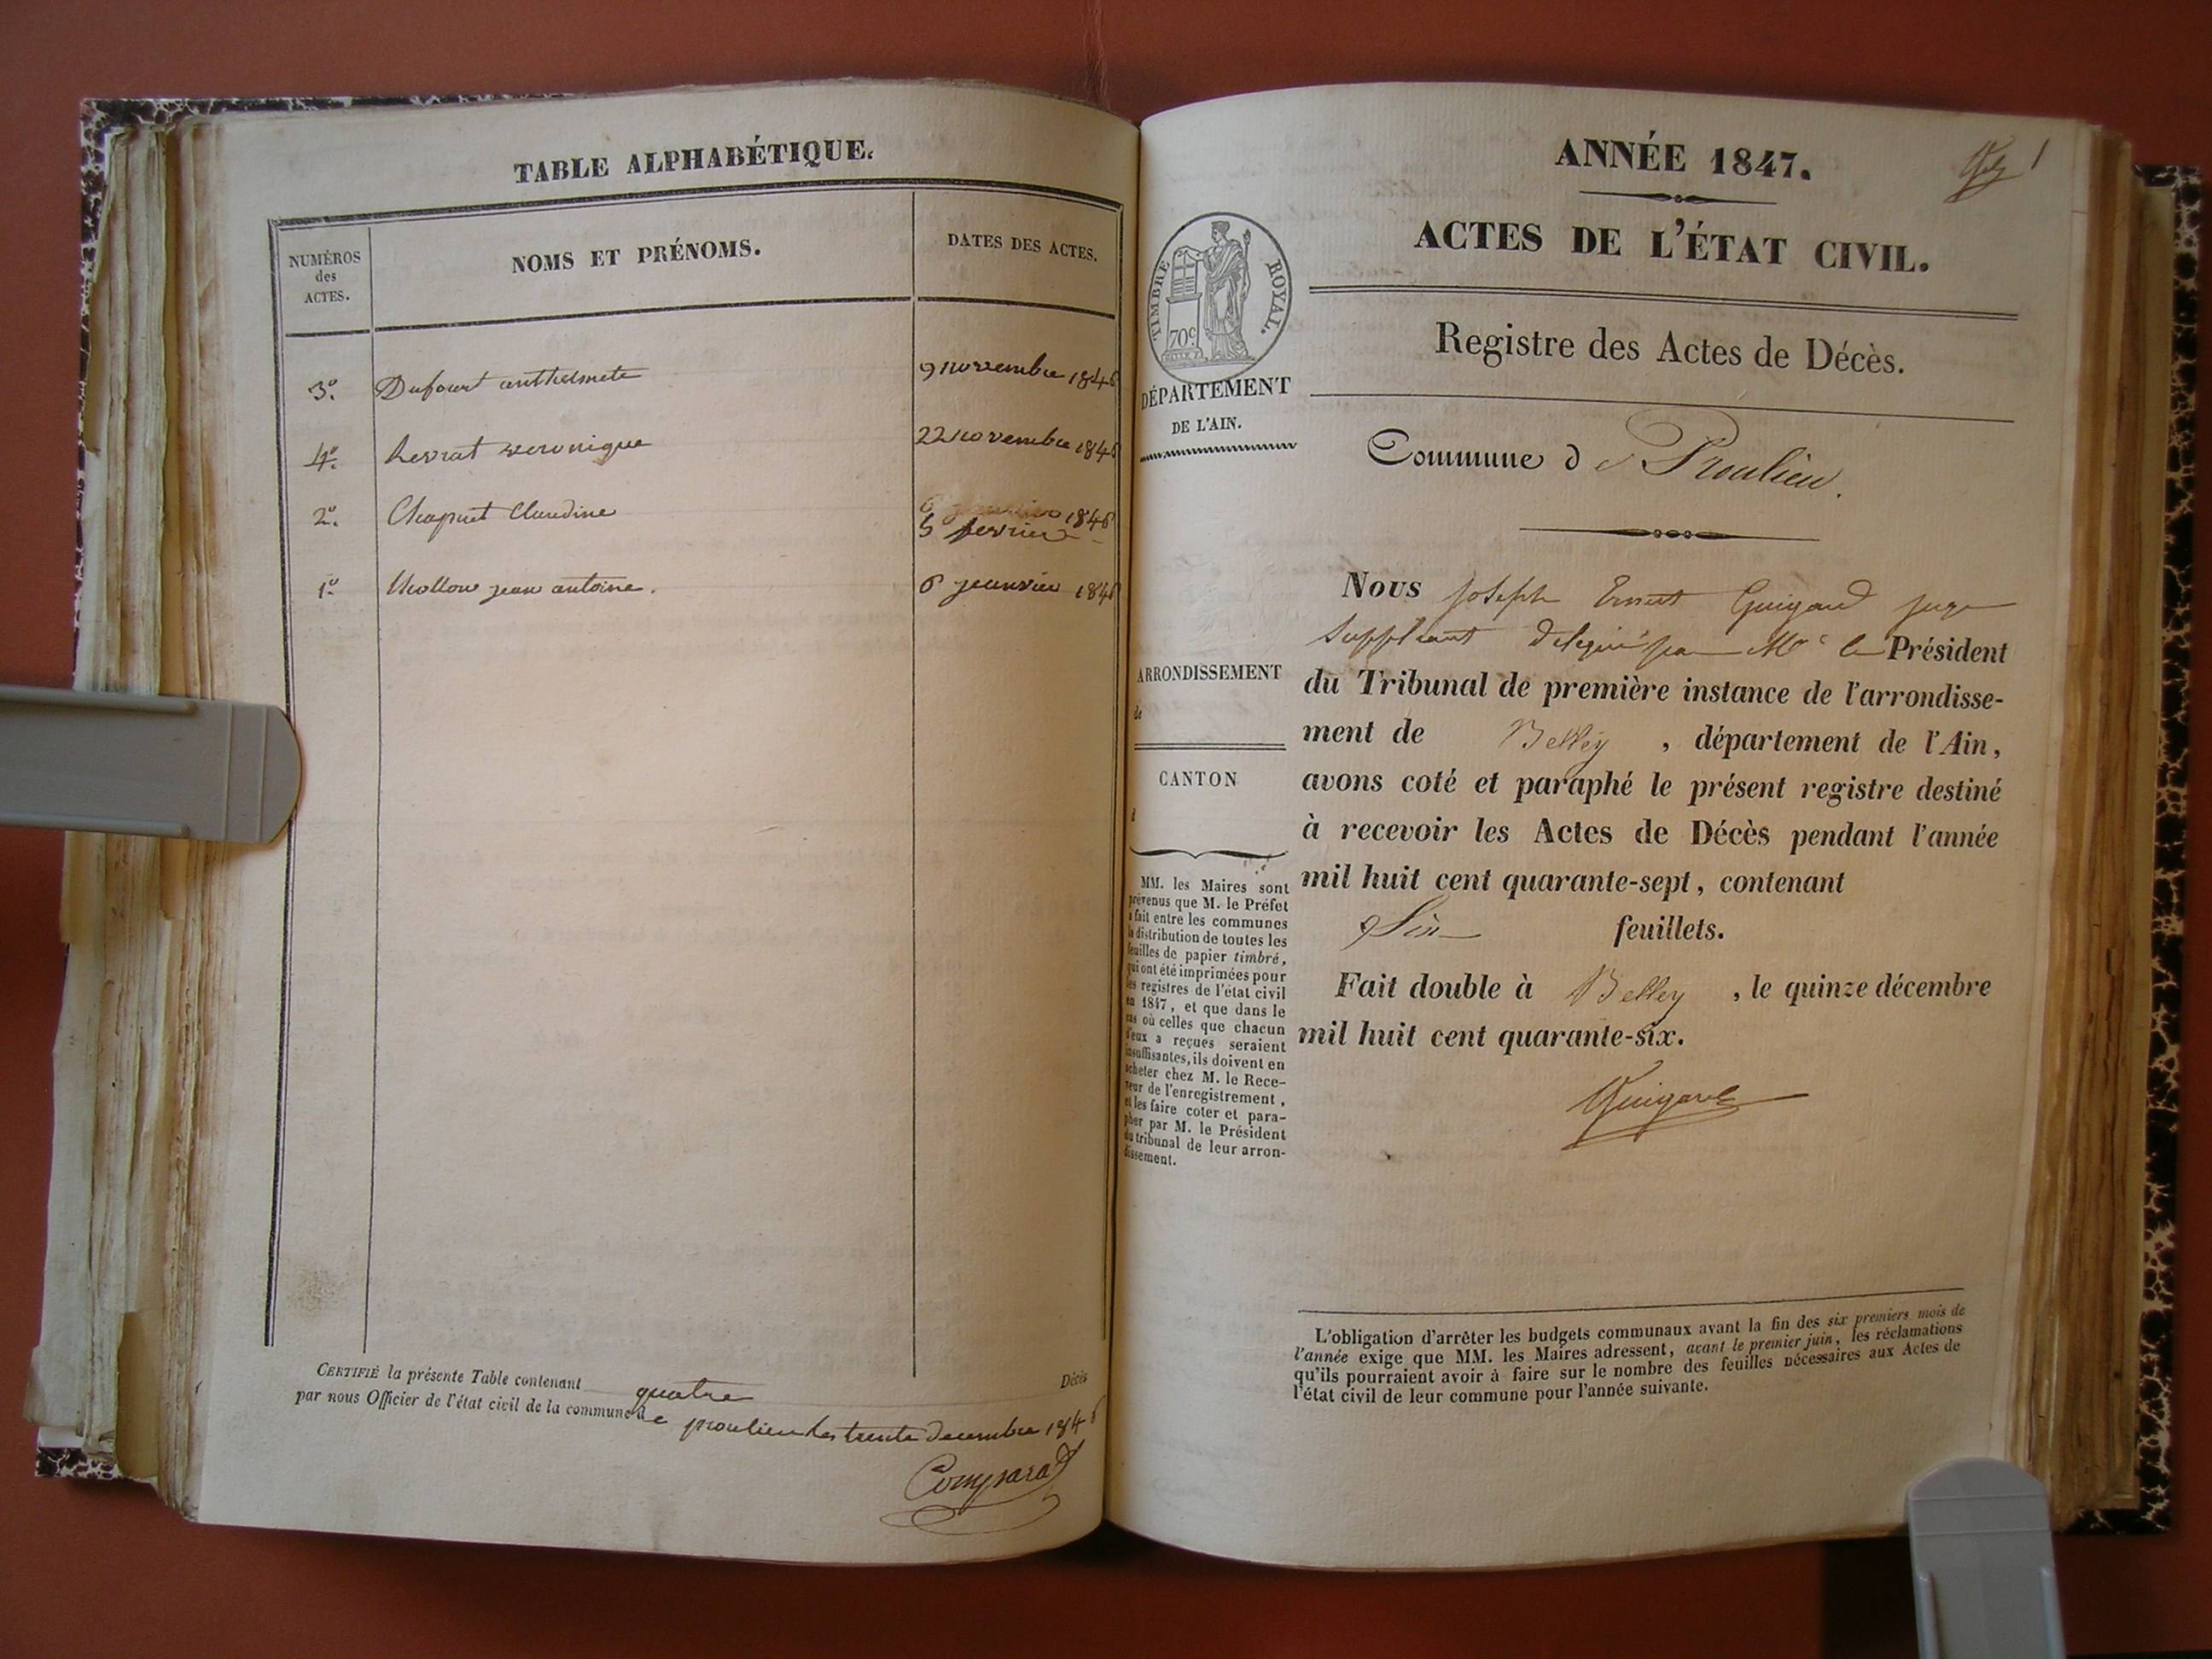 TABLE ALPHABÉTIQUE.
NUMÉROS
des
ACTES.
NOMS ET PRÉNOMS.
DATES DES ACTES.
3º. Dufourt anthelmete 9 novembre 1846
4º. veronique 22 novembre 1846
2º. Claudine 1846
5 fevrier
1º. jean antoine. 6 janvier 1846
CERTIFIÉ la présente Table contenant quatre Décès
par nous Officier de l'état civil de la commune de proulieu les trente decembre 1846
ANNÉE 1847.
1
ACTES DE L'ÉTAT CIVIL.
TIMBRE ROYAL.
70c
Registre des Actes de Décès.
DÉPARTEMENT
DE L'AIN.
Commune de Proulieu.
Nous Joseph Ernest Guigard juge
suppléant délégué par Mr le Président
du Tribunal de première instance de l'arrondisse-
ment de Belley, département de l'Ain,
avons coté et paraphé le présent registre destiné
à recevoir les Actes de Décès pendant l'année
mil huit cent quarante-sept, contenant
Six feuillets.
Fait double à Belley, le quinze décembre
mil huit cent quarante-six.
Guigard
ARRONDISSEMENT
de
CANTON
d
MM. les Maires sont
prévenus que M. le Préfet
a fait entre les communes
la distribution de toutes les
feuilles de papier timbré,
qui ont été imprimées pour
les registres de l'état civil
en 1847, et que dans le
cas où celles que chacun
d'eux a reçues seraient
insuffisantes, ils doivent en
acheter chez M. le Rece-
veur de l'enregistrement,
et les faire coter et para-
pher par M. le Président
du tribunal de leur arron-
dissement.
L'obligation d'arrêter les budgets communaux avant la fin des six premiers mois de
l'année exige que MM. les Maires adressent, avant le premier juin, les réclamations
qu'ils pourraient avoir à faire sur le nombre des feuilles nécessaires aux Actes de
l'état civil de leur commune pour l'année suivante.